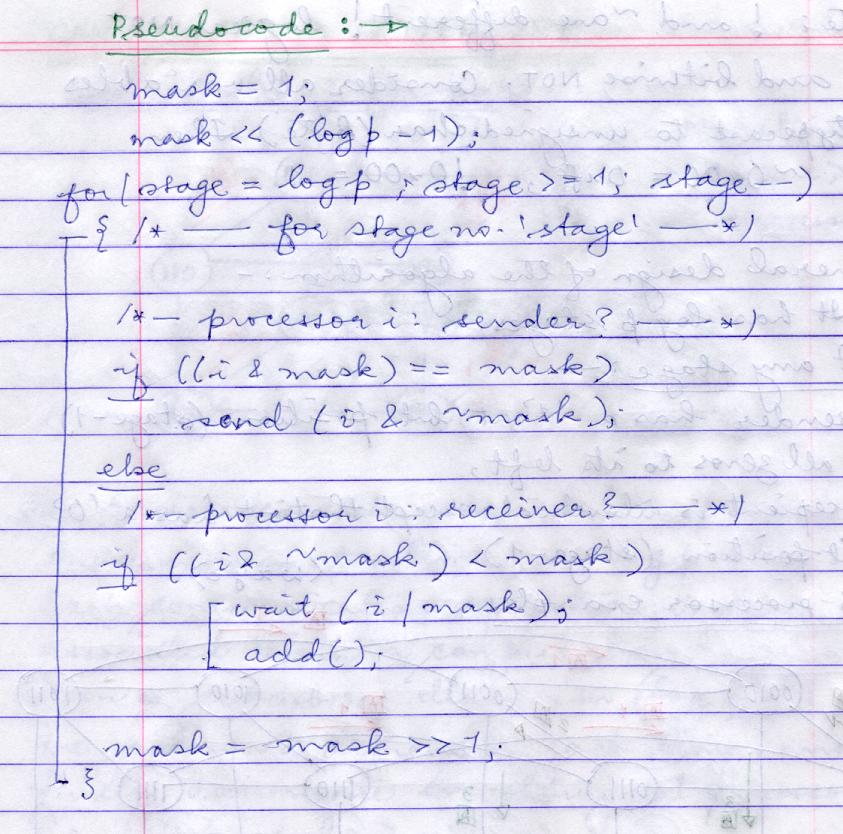 Pseudocode :→
mask = 1;
mask << (log p - 1);
for( stage = log p ; stage >= 1; stage--)
{ /* —— for stage no. 'stage' ——*/
/*— processor i : sender? ——*/
if ((i & mask) == mask)
send (i & ~mask);
else
/*— processor i : receiver? ——*/
if ((i & ~mask) < mask)
wait (i | mask);
add();
mask = mask >> 1;
}